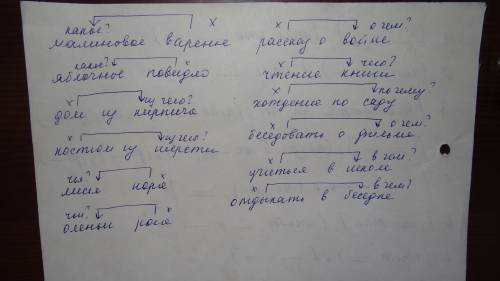 какое? х
малиновое варенье
какое? х
яблочное повидло
х из чего?
дом из кирпича
х из чего?
костюм из шерсти
чья? х
лисья нора
чьи? х
оленьи рога
х о чем?
рассказ о войне
х чего?
чтение книги
х по чему?
хождение по саду
х о чем?
беседовать о фильме
х в чем?
учиться в школе
х в чем?
отдыхать в беседке